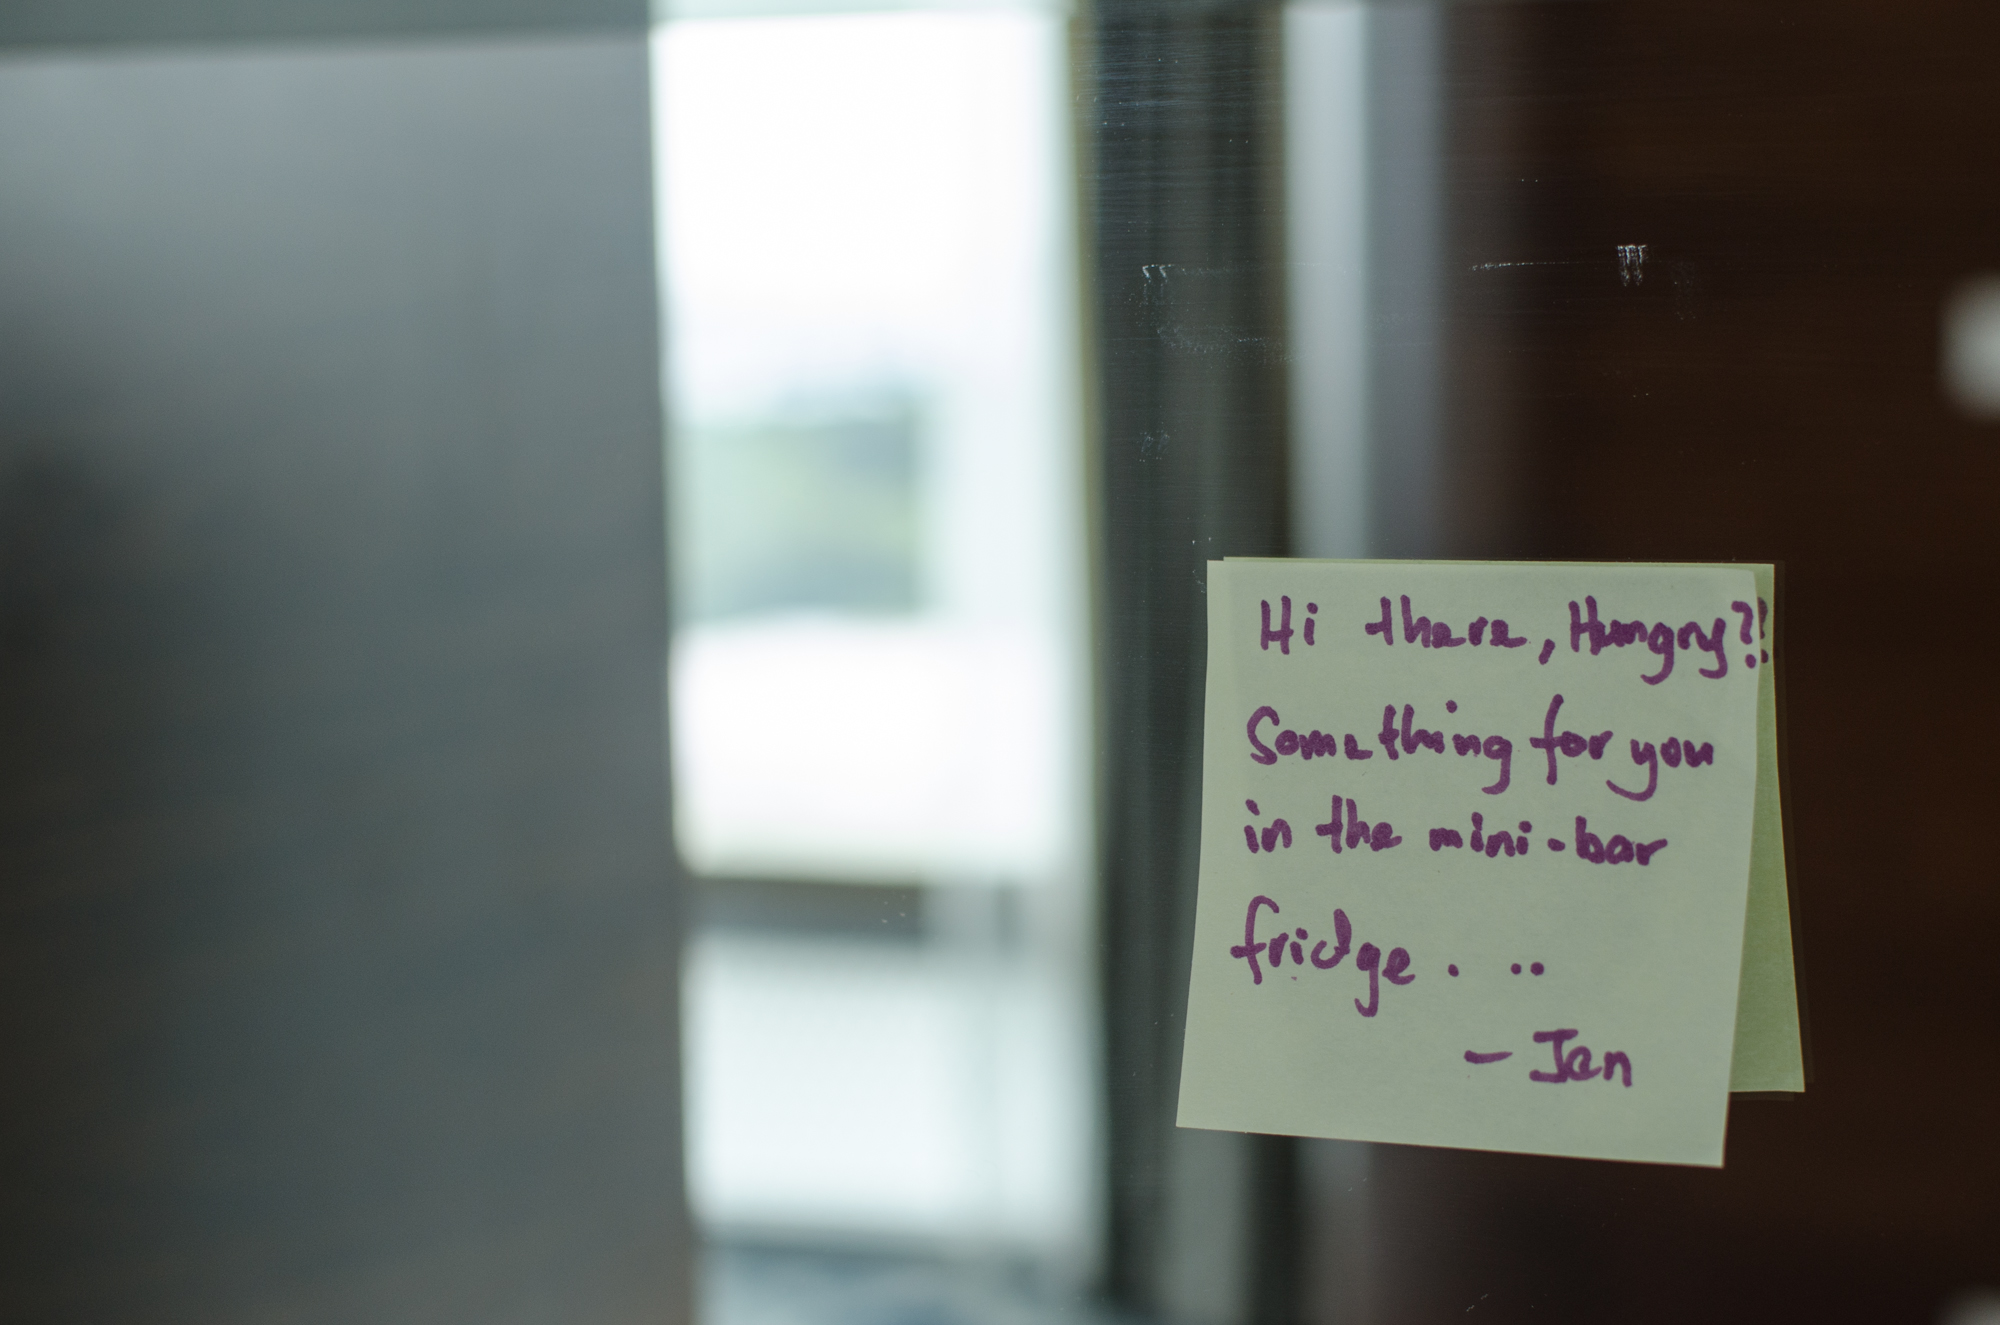 Hi there, Hungry?!
Something for you
in the mini-bar
fridge. ..
- Jen